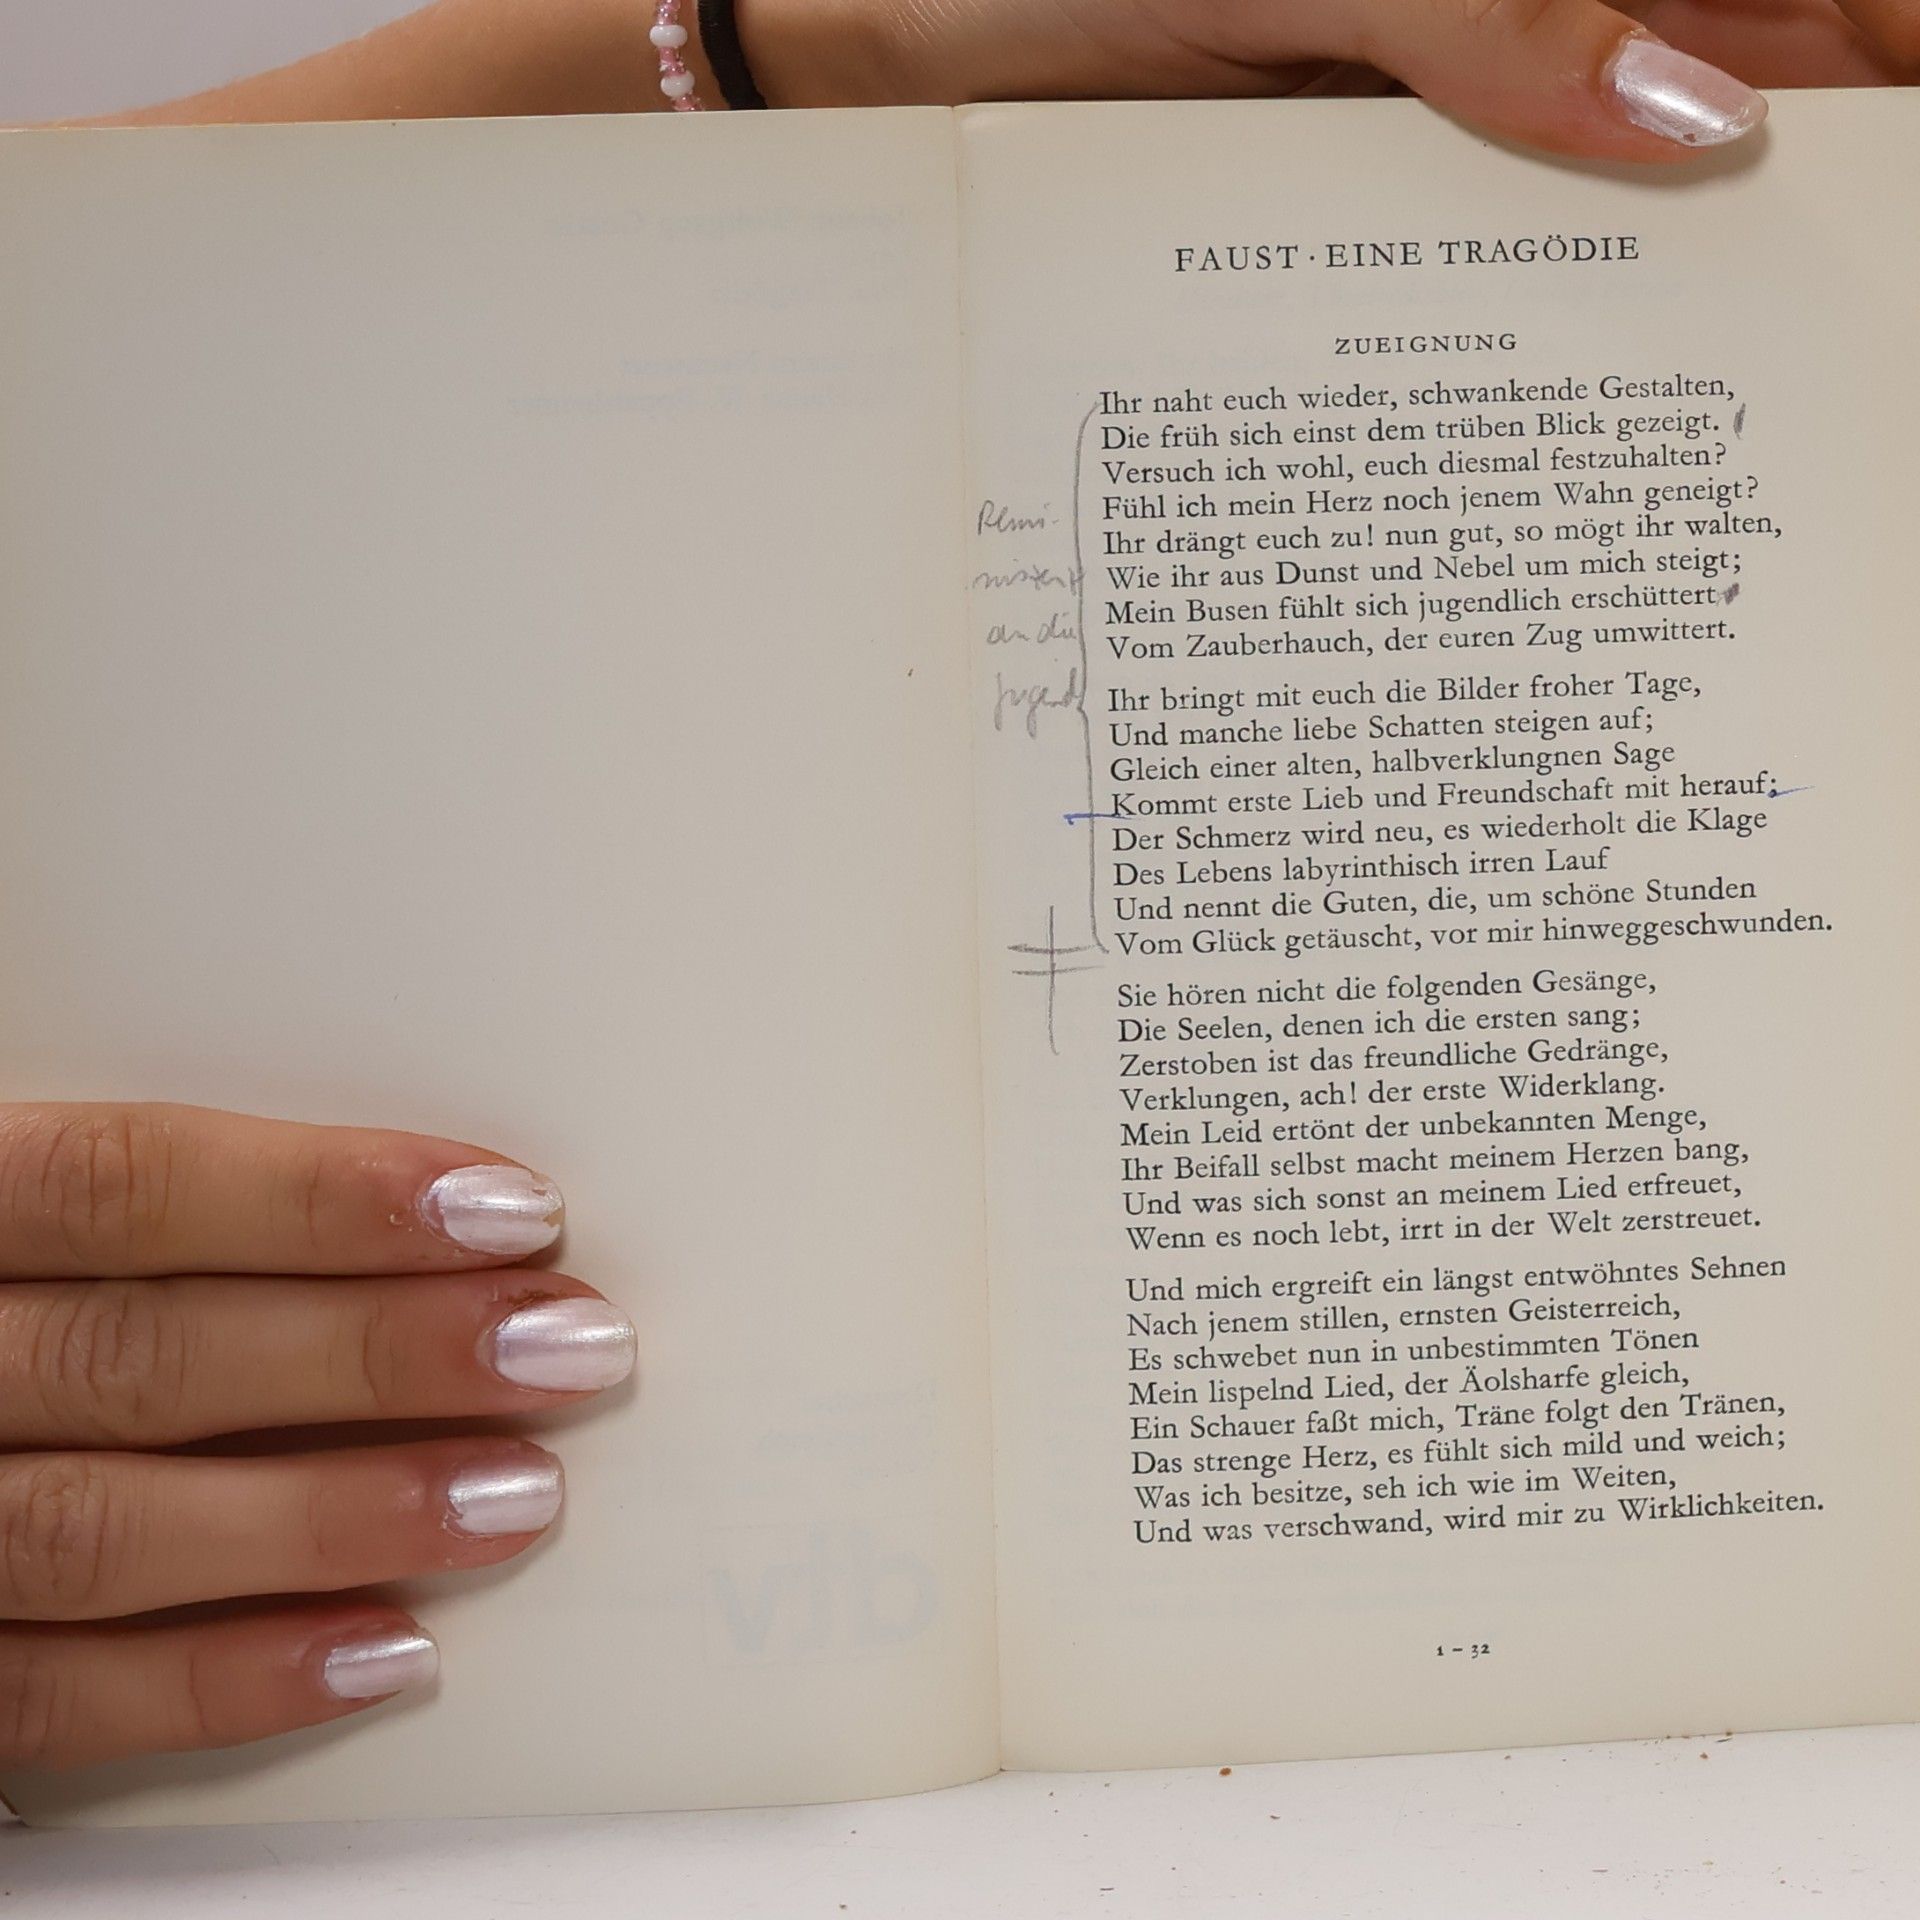 FAUST · EINE TRAGÖDIE
ZUEIGNUNG
Ihr naht euch wieder, schwankende Gestalten,
Die früh sich einst dem trüben Blick gezeigt.
Versuch ich wohl, euch diesmal festzuhalten?
Fühl ich mein Herz noch jenem Wahn geneigt?
Ihr drängt euch zu! nun gut, so mögt ihr walten,
Wie ihr aus Dunst und Nebel um mich steigt;
Mein Busen fühlt sich jugendlich erschüttert
Vom Zauberhauch, der euren Zug umwittert.
Ihr bringt mit euch die Bilder froher Tage,
Und manche liebe Schatten steigen auf;
Gleich einer alten, halbverklungnen Sage
Kommt erste Lieb und Freundschaft mit herauf;
Der Schmerz wird neu, es wiederholt die Klage
Des Lebens labyrinthisch irren Lauf
Und nennt die Guten, die, um schöne Stunden
Vom Glück getäuscht, vor mir hinweggeschwunden.
Sie hören nicht die folgenden Gesänge,
Die Seelen, denen ich die ersten sang;
Zerstoben ist das freundliche Gedränge,
Verklungen, ach! der erste Widerklang.
Mein Leid ertönt der unbekannten Menge,
Ihr Beifall selbst macht meinem Herzen bang,
Und was sich sonst an meinem Lied erfreuet,
Wenn es noch lebt, irrt in der Welt zerstreuet.
Und mich ergreift ein längst entwöhntes Sehnen
Nach jenem stillen, ernsten Geisterreich,
Es schwebet nun in unbestimmten Tönen
Mein lispelnd Lied, der Äolsharfe gleich,
Ein Schauer faßt mich, Träne folgt den Tränen,
Das strenge Herz, es fühlt sich mild und weich;
Was ich besitze, seh ich wie im Weiten,
Und was verschwand, wird mir zu Wirklichkeiten.
1 – 32
an die
Jugend